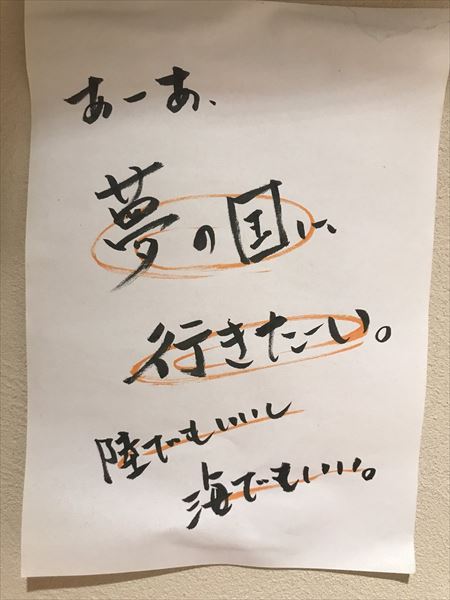 あーあ、
夢の国に、
行きたーい。
陸でもいいし
海でもいい。